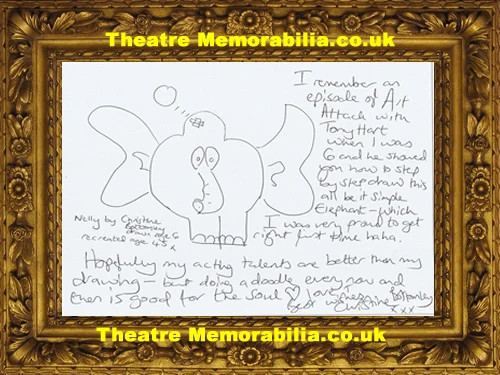 Theatre Memorabilia.co.uk
I remember an
episode of Art
Attack with
Tony Hart
when I was
6 and he showed
you how to step
by step draw this
all be it simple
Elephant - which
I was very proud to get
right first time haha.
Nelly by Christine
drawn age 6
recreated age 45 x
Hopefully my acting talents are better than my
drawing - but doing a doodle every now and
then is good for the soul ♡ love &
best wishes Christine
xxx
Theatre Memorabilia.co.uk